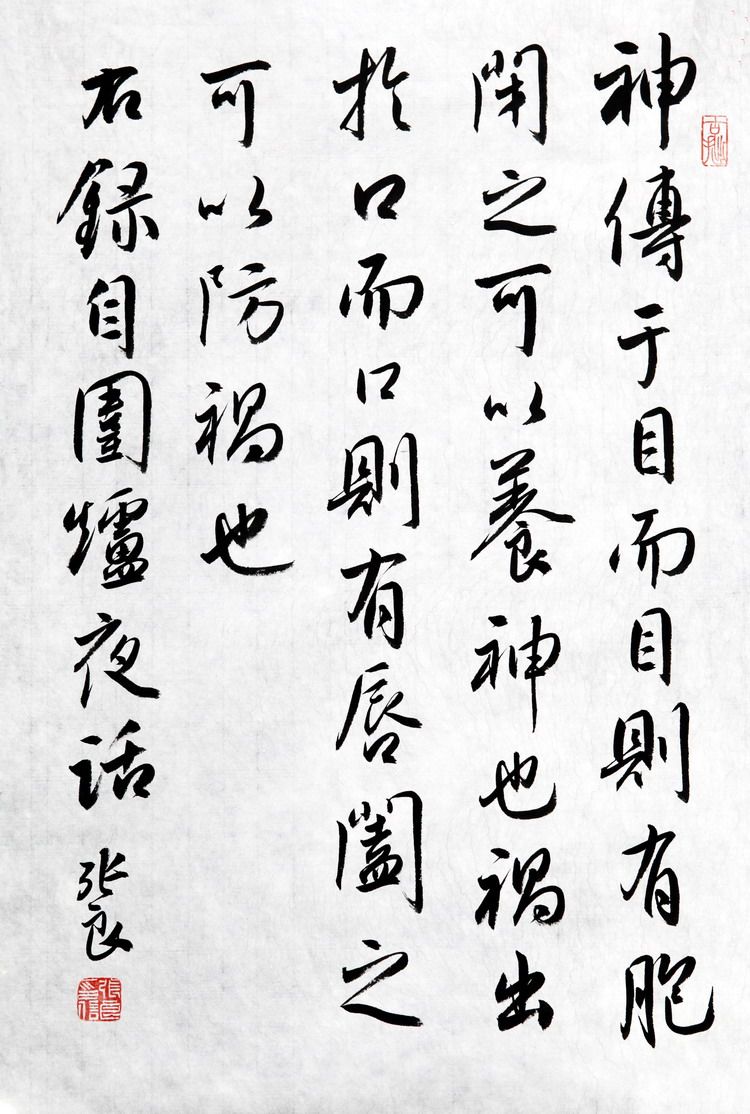 神傳于目而目則有胞
閉之可以養神也禍出
於口而口則有唇闔之
可以防禍也
右録自圍爐夜話
張良